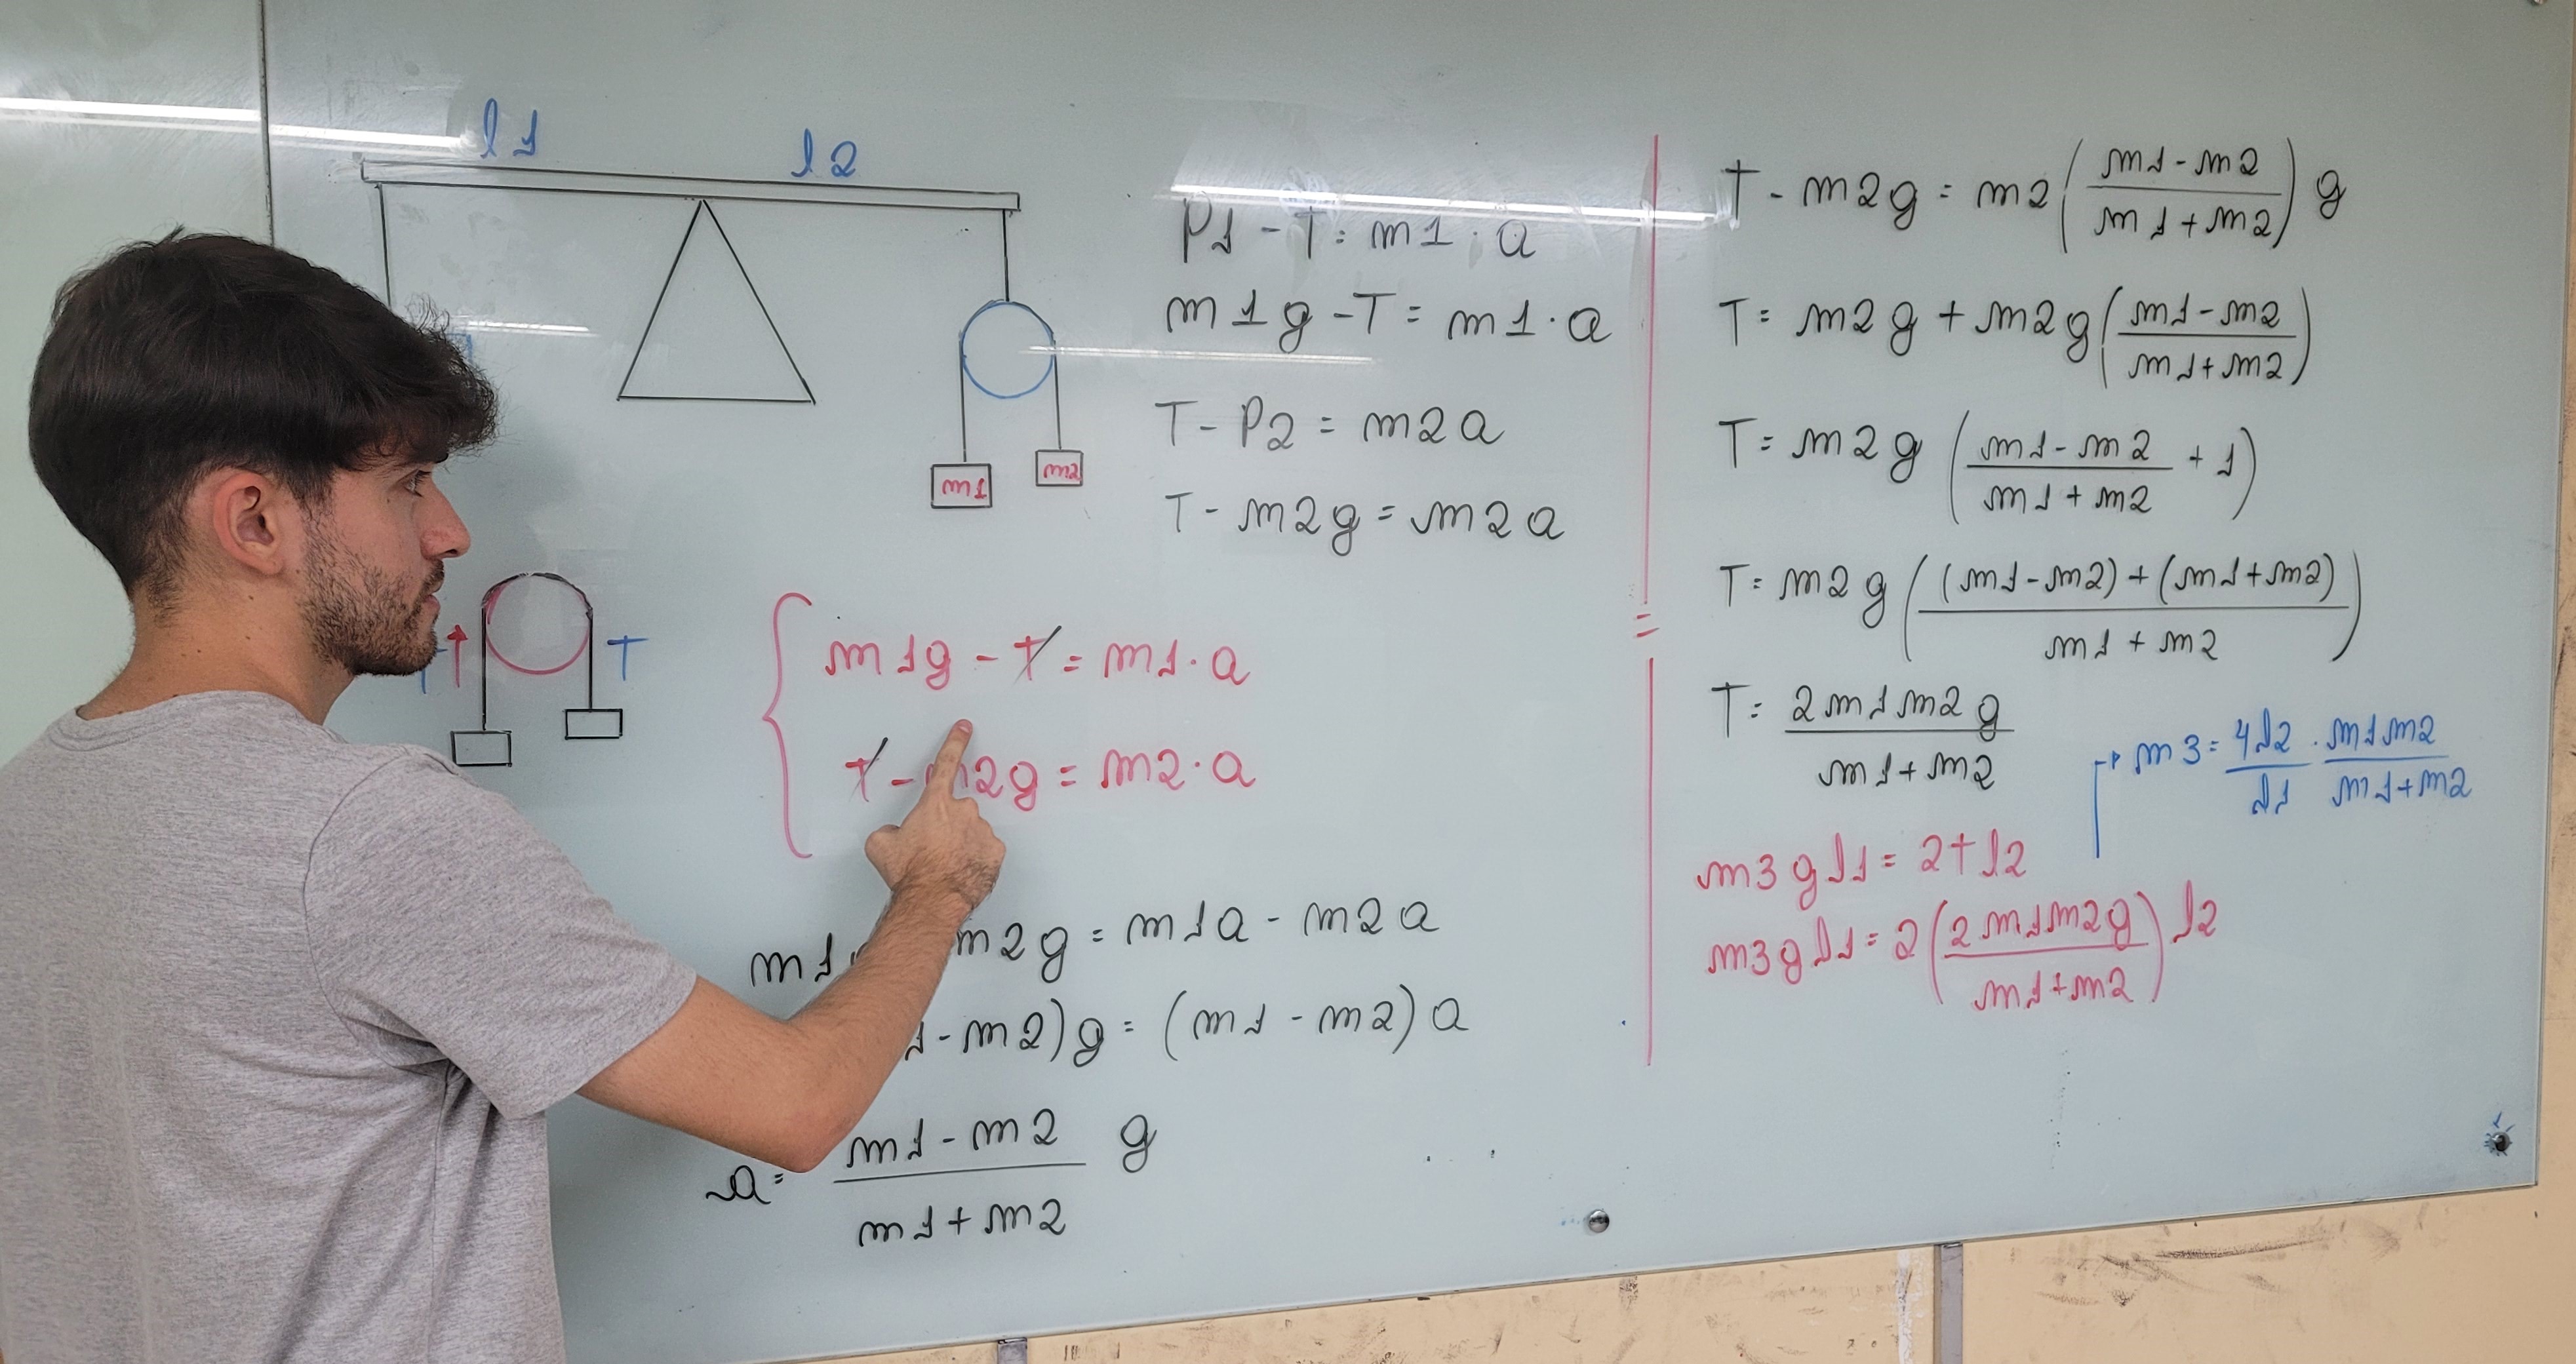 l1
l2
m1
m2
T
P1 - T = m1 . a
m1g - T = m1 . a
T - P2 = m2a
T - m2g = m2a
m1g - T = m1 . a
T - m2g = m2 . a
m1 m2g = m1a - m2a
- m2)g = (m1 - m2)a
a = m1 - m2 / m1 + m2 g
=
T - m2g = m2 (m1 - m2 / m1 + m2) g
T = m2g + m2g (m1 - m2 / m1 + m2)
T = m2g (m1 - m2 / m1 + m2 + 1)
T = m2g ((m1 - m2) + (m1 + m2) / m1 + m2)
T = 2m1m2g / m1 + m2
m3 = 4l2 / l1 . m1m2 / m1 + m2
m3gl1 = 2Tl2
m3gl1 = 2 (2m1m2g / m1 + m2) l2